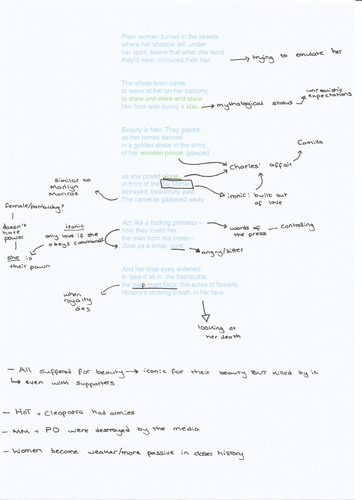 Plain women turned in the streets
where her shadow fell, under
her spell, swore that what she wore
they'd wear, coloured their hair.
→ trying to emulate her
The whole town came
to wave at her on her balcony,
to stare and stare and stare.
Her face was surely a star.
→ mythological status → unrealistic expectations
Beauty is fate. They gaped
as her bones danced
in a golden dress in the arms
of her wooden prince, gawped
Camilla
Charles' affair
as she posed alone
in front of the Taj Mahal,
betrayed, beautifully pale.
The cameras gibbered away.
ironic: built out
of love
Similar to
Marilyn
Monroe
Act like a fucking princess—
how they loved her,
the men from the press—
Give us a smile, cunt.
words of
the press → controlling
angry/bitter
female/patriarchy?
doesn't
have
power
she is
their pawn
ironic
only love if she
obeys commands
And her blue eyes widened
to take it all in: the flashbulbs,
the half-mast flags, the acres of flowers,
History's stinking breath in her face.
when
royalty
dies
looking at
her death
- All suffered for beauty → iconic for their beauty BUT killed by it
↳ even with supporters
- HoT + Cleopatra had armies
- MM + PD were destroyed by the media
- Women become weaker/more passive in closer history